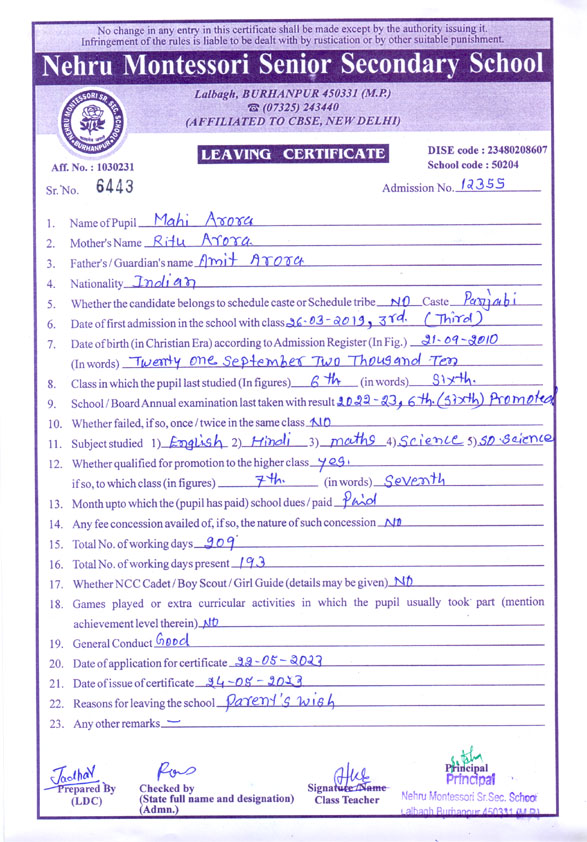 No change in any entry in this certificate shall be made except by the authority issuing it.
Infringement of the rules is liable to be dealt with by rustication or by other suitable punishment.
Nehru Montessori Senior Secondary School
Lalbagh, BURHANPUR 450331 (M.P.)
☎ (07325) 243440
(AFFILIATED TO CBSE, NEW DELHI)
NEHRU MONTESSORI SR. SEC. SCHOOL
BURHANPUR
LEAVING CERTIFICATE
DISE code : 23480208607
School code : 50204
Aff. No. : 1030231
Sr. No. 6443
Admission No. 12355
1. Name of Pupil Mahi Arora
2. Mother's Name Ritu Arora
3. Father's / Guardian's name Amit Arora
4. Nationality Indian
5. Whether the candidate belongs to schedule caste or Schedule tribe NO Caste Panjabi
6. Date of first admission in the school with class 26-03-2019, 3rd. (Third)
7. Date of birth (in Christian Era) according to Admission Register (In Fig.) 21-09-2010
(In words) Twenty one September Two Thousand Ten
8. Class in which the pupil last studied (In figures) 6th (in words) Sixth.
9. School / Board Annual examination last taken with result 2022-23, 6th. (Sixth) Promoted
10. Whether failed, if so, once / twice in the same class NO
11. Subject studied 1) English 2) Hindi 3) maths 4) Science 5) SO Science
12. Whether qualified for promotion to the higher class yes.
if so, to which class (in figures) 7th. (in words) Seventh
13. Month upto which the (pupil has paid) school dues / paid Paid
14. Any fee concession availed of, if so, the nature of such concession NO
15. Total No. of working days 209
16. Total No. of working days present 193
17. Whether NCC Cadet / Boy Scout / Girl Guide (details may be given) NO
18. Games played or extra curricular activities in which the pupil usually took part (mention
achievement level therein) NO
19. General Conduct Good
20. Date of application for certificate 22-05-2023
21. Date of issue of certificate 24-05-2023
22. Reasons for leaving the school Parent's wish
23. Any other remarks —
Jadhav
Prepared By
(LDC)
Checked by
(State full name and designation)
(Admn.)
Signature /Name
Class Teacher
Principal
Principal
Nehru Montessori Sr.Sec. School
Lalbagh Burhanpur 450331 (M.P.)